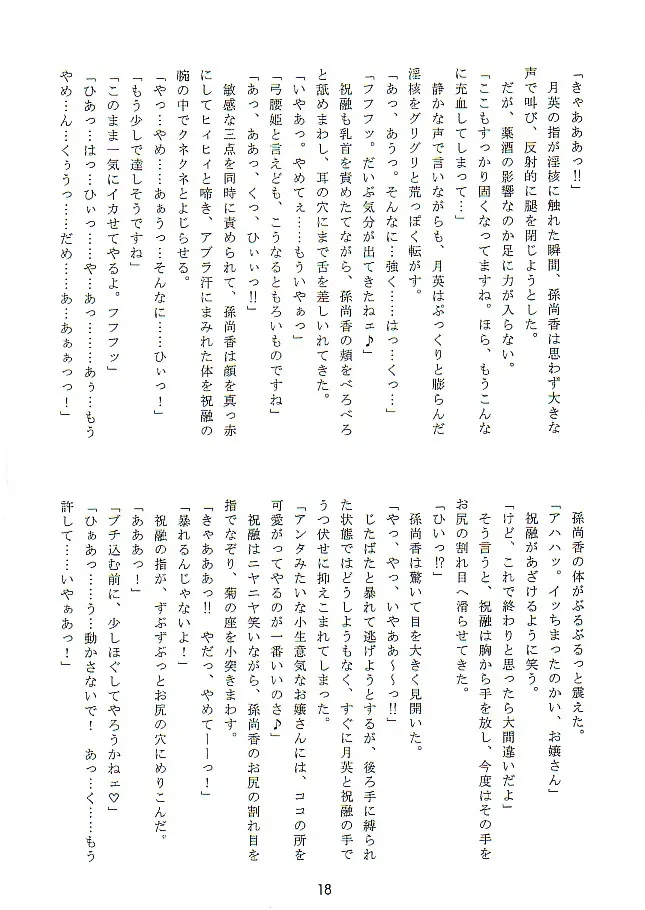 「きゃあああっ!!」
月英の指が淫核に触れた瞬間、孫尚香は思わず大きな
声で叫び、反射的に腿を閉じようとした。
だが、薬酒の影響なのか足に力が入らない。
「ここもすっかり固くなってますね。ほら、もうこんな
に充血してしまって…」
静かな声で言いながらも、月英はぷっくりと膨らんだ
淫核をグリグリと荒っぽく転がす。
「あっ、あうっ。そんなに…強く……はっ…くっ…」
「フフフッ。だいぶ気分が出てきたねェ♪」
祝融も乳首を責めたてながら、孫尚香の頬をべろべろ
と舐めまわし、耳の穴にまで舌を差しいれてきた。
「いやあっ。やめてぇ……もういやぁっ」
「弓腰姫と言えども、こうなるともろいものですね」
「あっ、ああっ、くっ、ひぃぃっ!!」
敏感な三点を同時に責められて、孫尚香は顔を真っ赤
にしてヒィヒィと啼き、アブラ汗にまみれた体を祝融の
腕の中でクネクネとよじらせる。
「やっ…やめ……あぁうっ…そんなに……ひぃっ!」
「もう少しで達しそうですね」
「このまま一気にイカせてやるよ。フフフッ」
「ひあっ…はっ…ひぃっ……や…あっ………あぅ…もう
やめ…ん…くぅうっ……だめ……あ…あぁぁっっ!」
孫尚香の体がぶるぶるっと震えた。
「アハハッ。イッちまったのかい、お嬢さん」
祝融があざけるように笑う。
「けど、これで終わりと思ったら大間違いだよ」
そう言うと、祝融は胸から手を放し、今度はその手を
お尻の割れ目へ滑らせてきた。
「ひいっ!?」
孫尚香は驚いて目を大きく見開いた。
「やっ、やっ、いやああ～～っ!!」
じたばたと暴れて逃げようとするが、後ろ手に縛られ
た状態ではどうしようもなく、すぐに月英と祝融の手で
うつ伏せに抑えこまれてしまった。
「アンタみたいな小生意気なお嬢さんには、ココの所を
可愛がってやるのが一番いいのさ♪」
祝融はニヤニヤ笑いながら、孫尚香のお尻の割れ目を
指でなぞり、菊の座を小突きまわす。
「きゃあああっ!!　やだっ、やめてーーっ!」
「暴れるんじゃないよ!」
祝融の指が、ずぶずぶっとお尻の穴にめりこんだ。
「あああっ!」
「ブチ込む前に、少しほぐしてやろうかねェ♡」
「ひぁあっ……う…動かさないで!　あっ…く……もう
許して……いやぁあっ!」
18